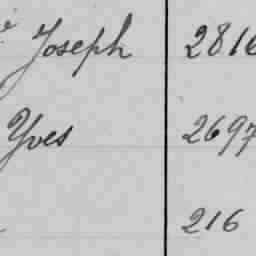 Joseph 2816
Yves 2697
216